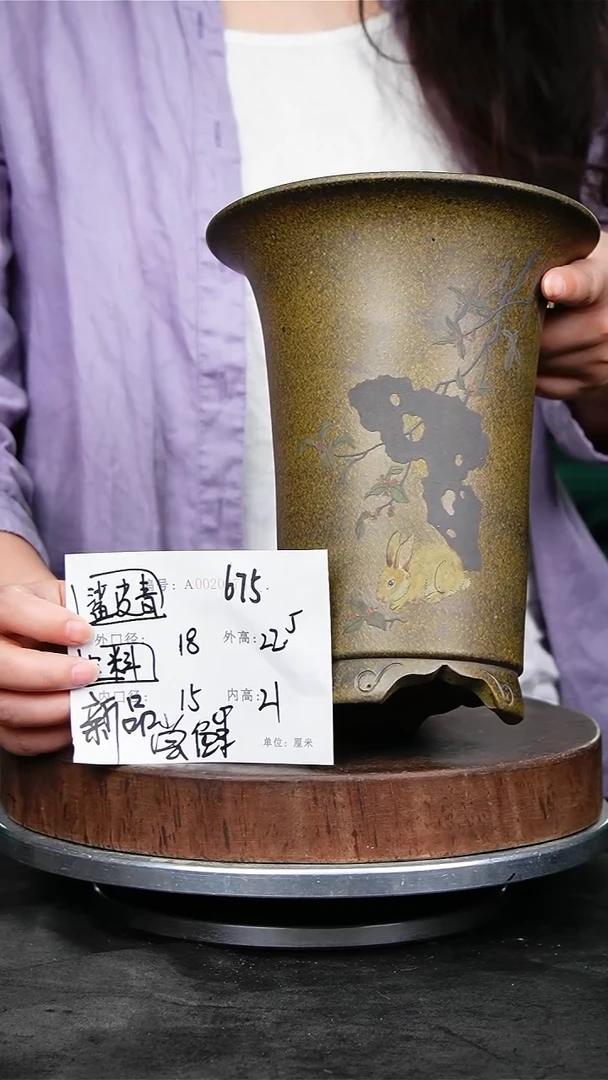 鲨皮青 号: A0020 675
外口径: 18 外高: 22.5
料
内口径: 15 内高: 21
新品尝鲜
单位: 厘米